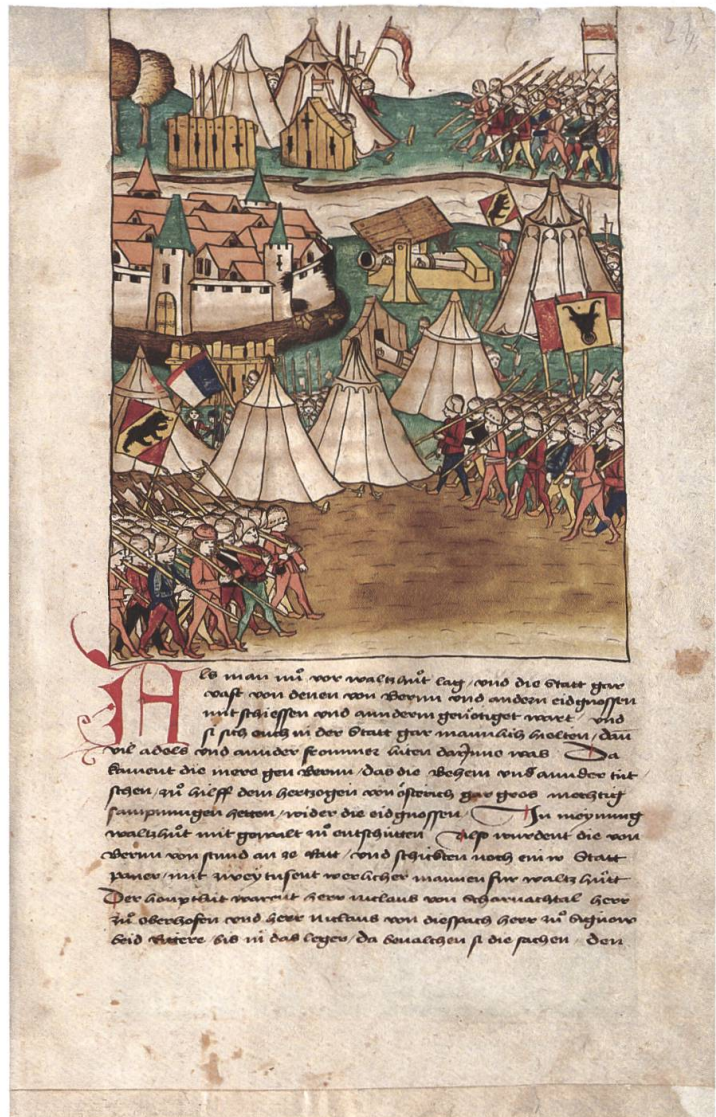 24
Als man nů vor waltzhůt lag / vnd die Statt gar
vast von denen von Bernn vnd andern eidgnossen
mit schiessen vnd annderm genötiget wart / vnd
si sich ouch in der Statt gar manlich hielten / dan
vil adels vnd annder frommer lüten darInne was Da
kament die mere gen Bernn / das die Behem vnd annder tüt
schen / zů hilff dem hertzogen von österich gar gros mechtig
sampnungen hetten / wider die eidgnossen / In meynung
waltzhůt mit gewalt zů entschütten Also wurdent die von
Bernn von stund an ze Ratt / vnd schickten noch ein Statt
paner / mit zwey tusent werlicher mannen fur waltzhůtt
Der houptlüt warent herr niclaus von Scharnachtal herr
zů oberhofen vnd herr niclaus von diespach herr zů Signow
beid Rittere / bis in das leger / da beualchen si die sachen / den